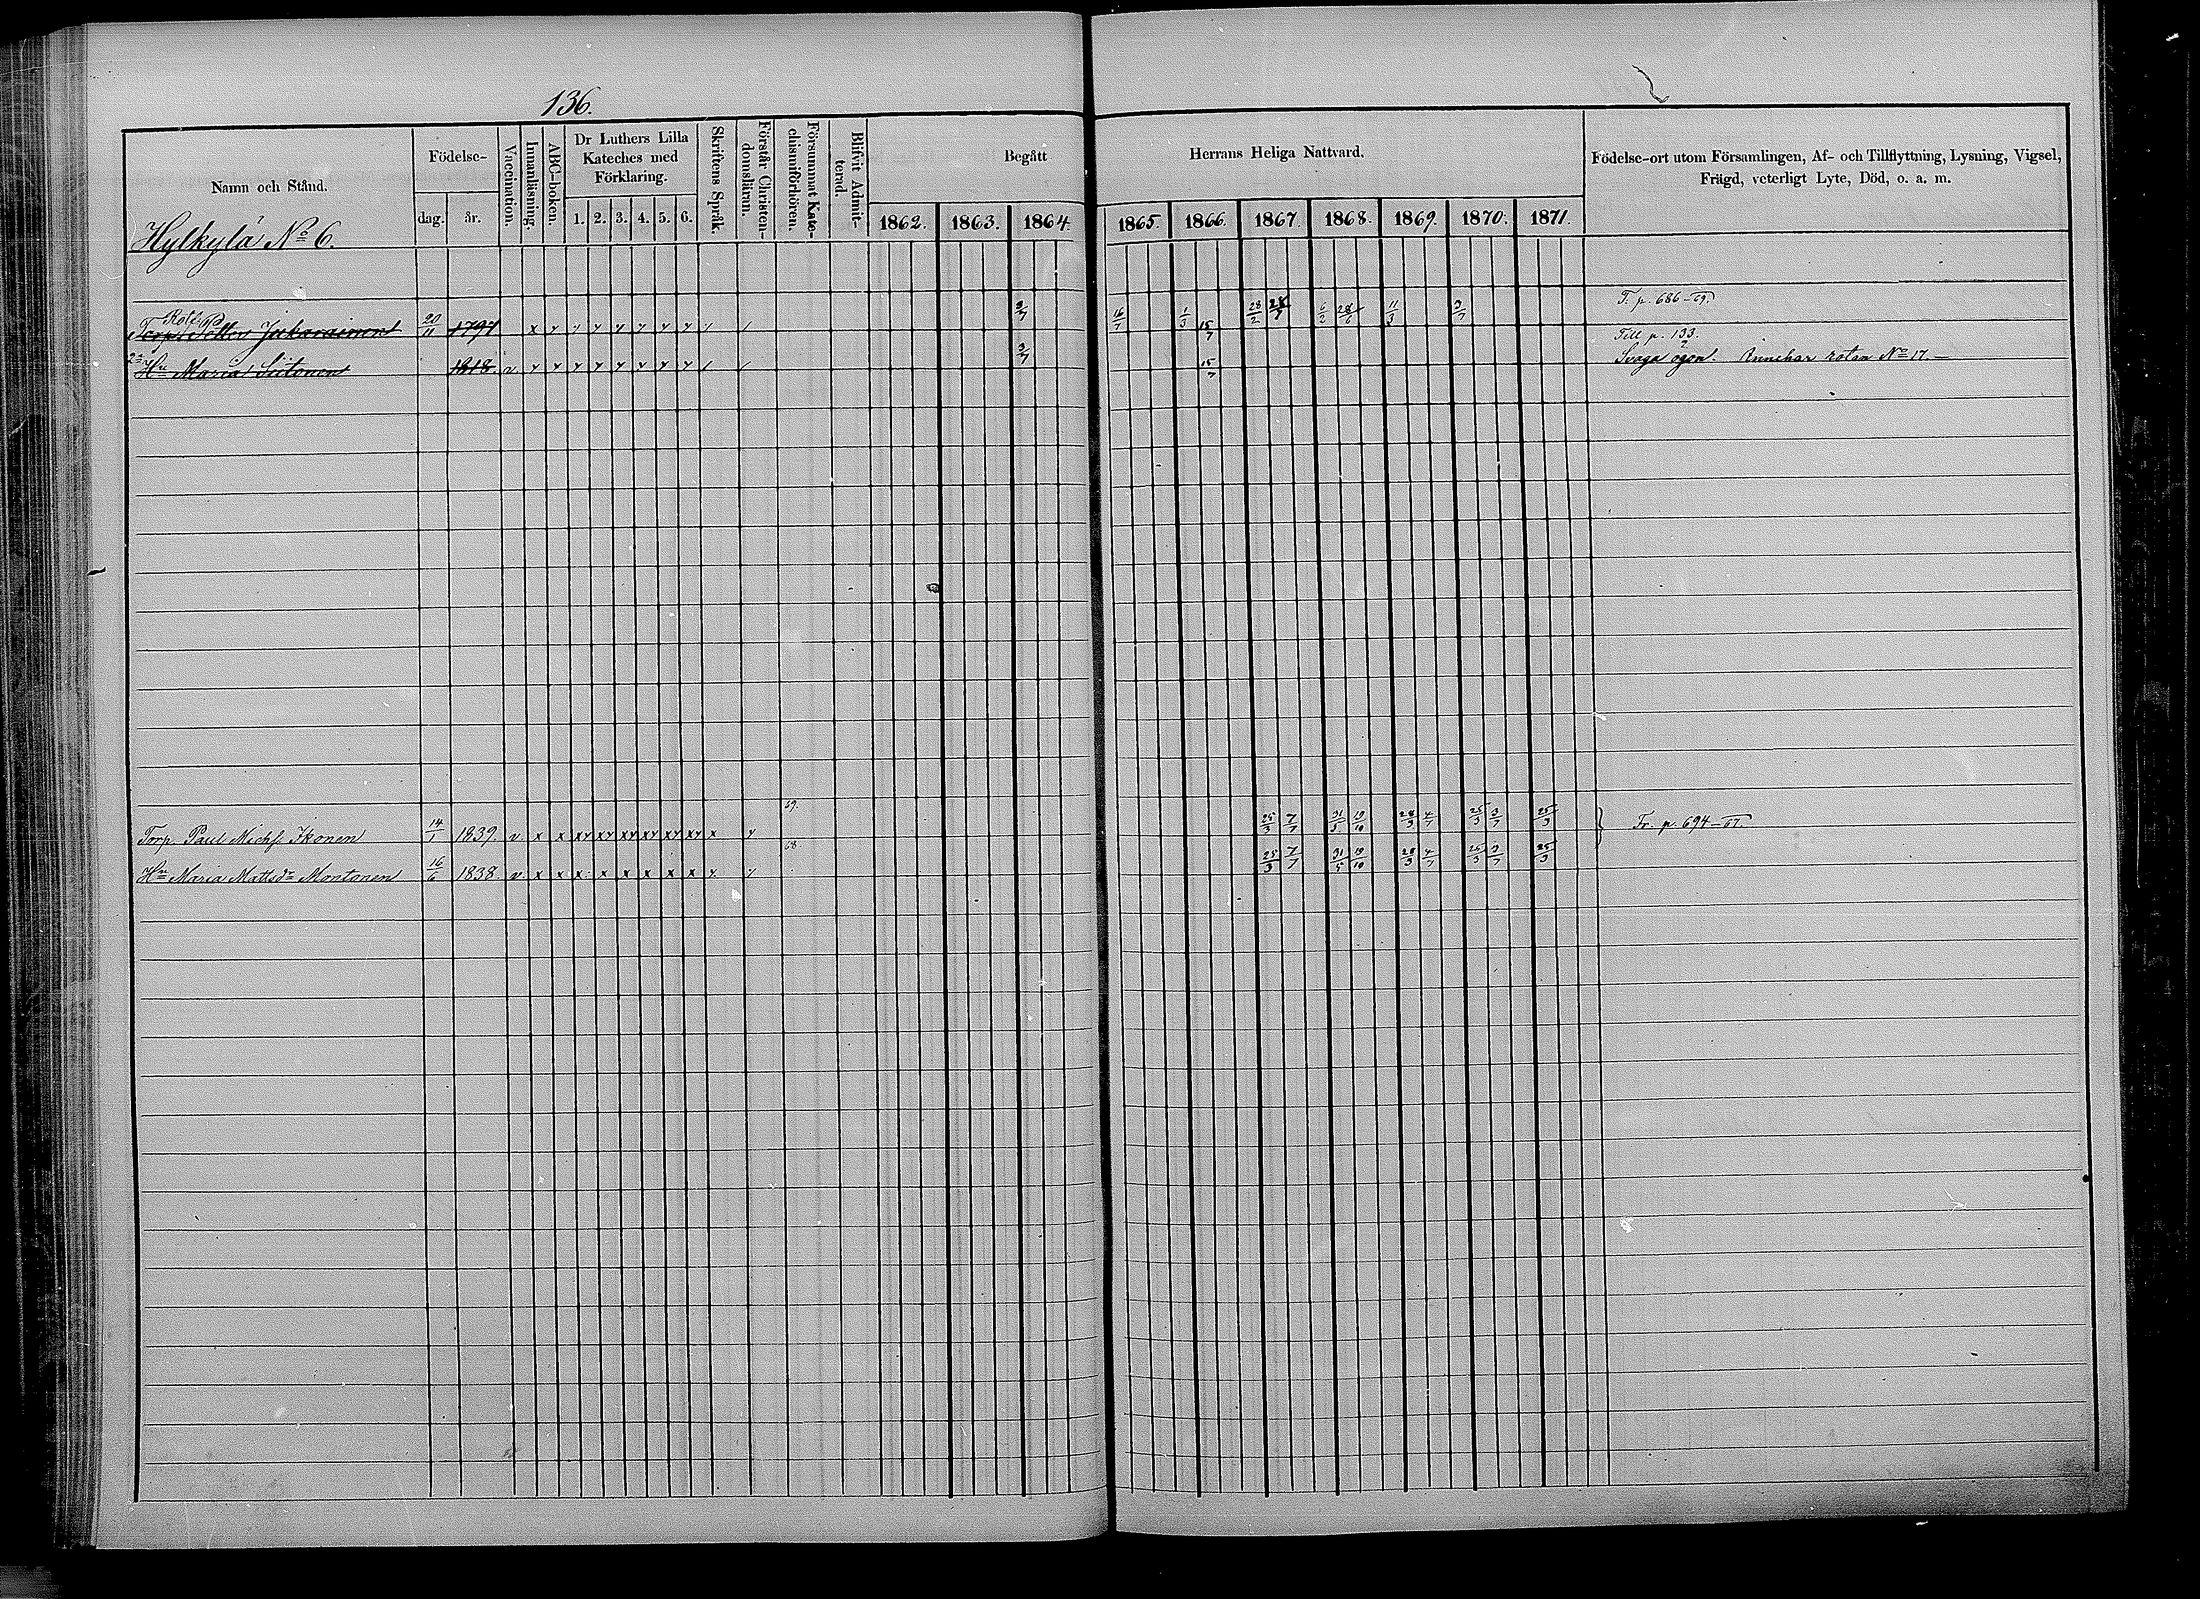 136.
Namn och Stånd.
Födelse-
dag. år.
Vaccination.
Innanläsning.
ABC-boken.
Dr Luthers Lilla
Kateches med
Förklaring.
1. 2. 3. 4. 5. 6.
Skriftens Språk.
Förstår Christen-
domsläran.
Försummat Kate-
chismiförhören.
Blifvit Admit-
terad.
Begått Herrans Heliga Nattvard.
1862. 1863. 1864. 1865. 1866. 1867. 1868. 1869. 1870. 1871.
Födelse-ort utom Församlingen, Af- och Tillflyttning, Lysning, Vigsel,
Frägd, veterligt Lyte, Död, o. a. m.
Hylkylä No 6.
T. p. 686-69.
Torp. Petter 20/11 1797 x y y y y y y y / / 3/7 16/7 1/3 15/7 28/2 6/2 28/6 11/3 3/7
Till p. 133.
2a Hu Maria Siitonen 1818. v y y y y y y y y / / 3/7 15/7 Svaga ögon. Innehar rotan No 17 -
69.
Torp. Paul Michs. Ikonen 14/1 1839. v x x xy xy xy xy xy xy x y 25/3 7/7 31/5 19/10 28/3 4/7 25/3 3/7 25/3 Fr. p. 694-61.
68.
Hu Maria Mattsdr Montonen 16/6 1838 v x x x x x x x x y y 25/3 7/7 31/5 19/10 28/3 4/7 25/3 3/7 25/3